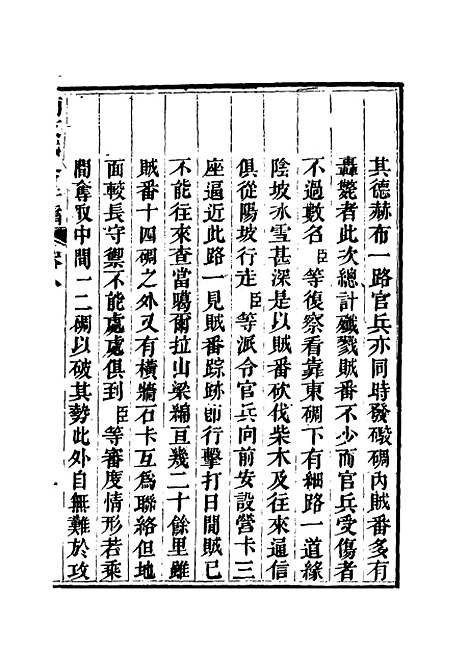 其德赫布一路官兵亦同時發礮碉內賊番多有
轟斃者此次總計殲戮賊番不少而官兵受傷者
不過數名臣等復察看靠東碉下有細路一道緣
陰坡冰雪甚深是以賊番砍伐柴木及往來通信
俱從陽坡行走臣等派令官兵向前安設營卡三
座逼近此路一見賊番踪跡即行擊打日間賊已
不能往來查當噶爾拉山梁綿亘幾二十餘里雖
賊番十四碉之外又有橫牆石卡互爲聯絡但地
面較長守禦不能處處俱到臣等審度情形若乘
間奪取中間一二碉以破其勢此外自無難於攻
卷八